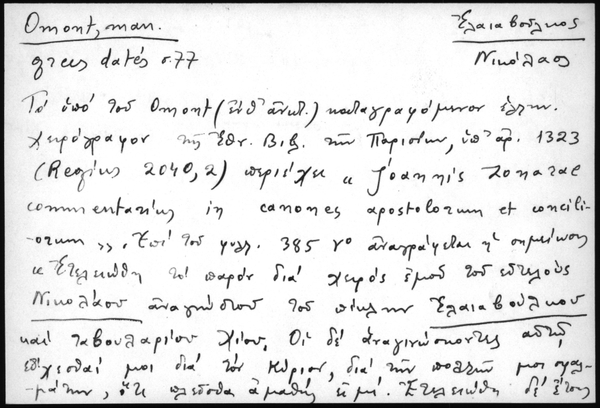 Omont, man. Ἐλαιαβούλκος
grecs datés σ. 77 Νικόλαος
Τό ὑπό τοῦ Omont (ἔνθ' ἀνωτ.) καταγραφόμενον ἑλλην.
χειρόγραφον τῆς Ἐθν. Βιβ. τῶν Παρισίων, ὑπ' ἀρ. 1323
(Regius 2040,2) περιέχει « Joannis Zonarae
commentarius in canones apostolorum et concili-
-orum ». Ἐπί τοῦ φυλλ. 385 vο ἀναγράφεται ἡ σημείωσις
« Ἐτελειώθη τό παρόν διά χειρός ἐμοῦ τοῦ εὐτελοῦς
Νικολάου ἀναγνώστου τοῦ πίκλην Ἐλαιαβούλκου
καί ταβουλαρίου Χίου. Οἱ δέ ἀναγινώσκοντες αὐτῷ
εὔχεσθαί μοι διά τόν Κύριον, διά τῶν πολλῶν μου σφαλ-
μάτων, ὅτι ἀμαθής εἰμί. Ἐτελειώθη δέ ἔτους